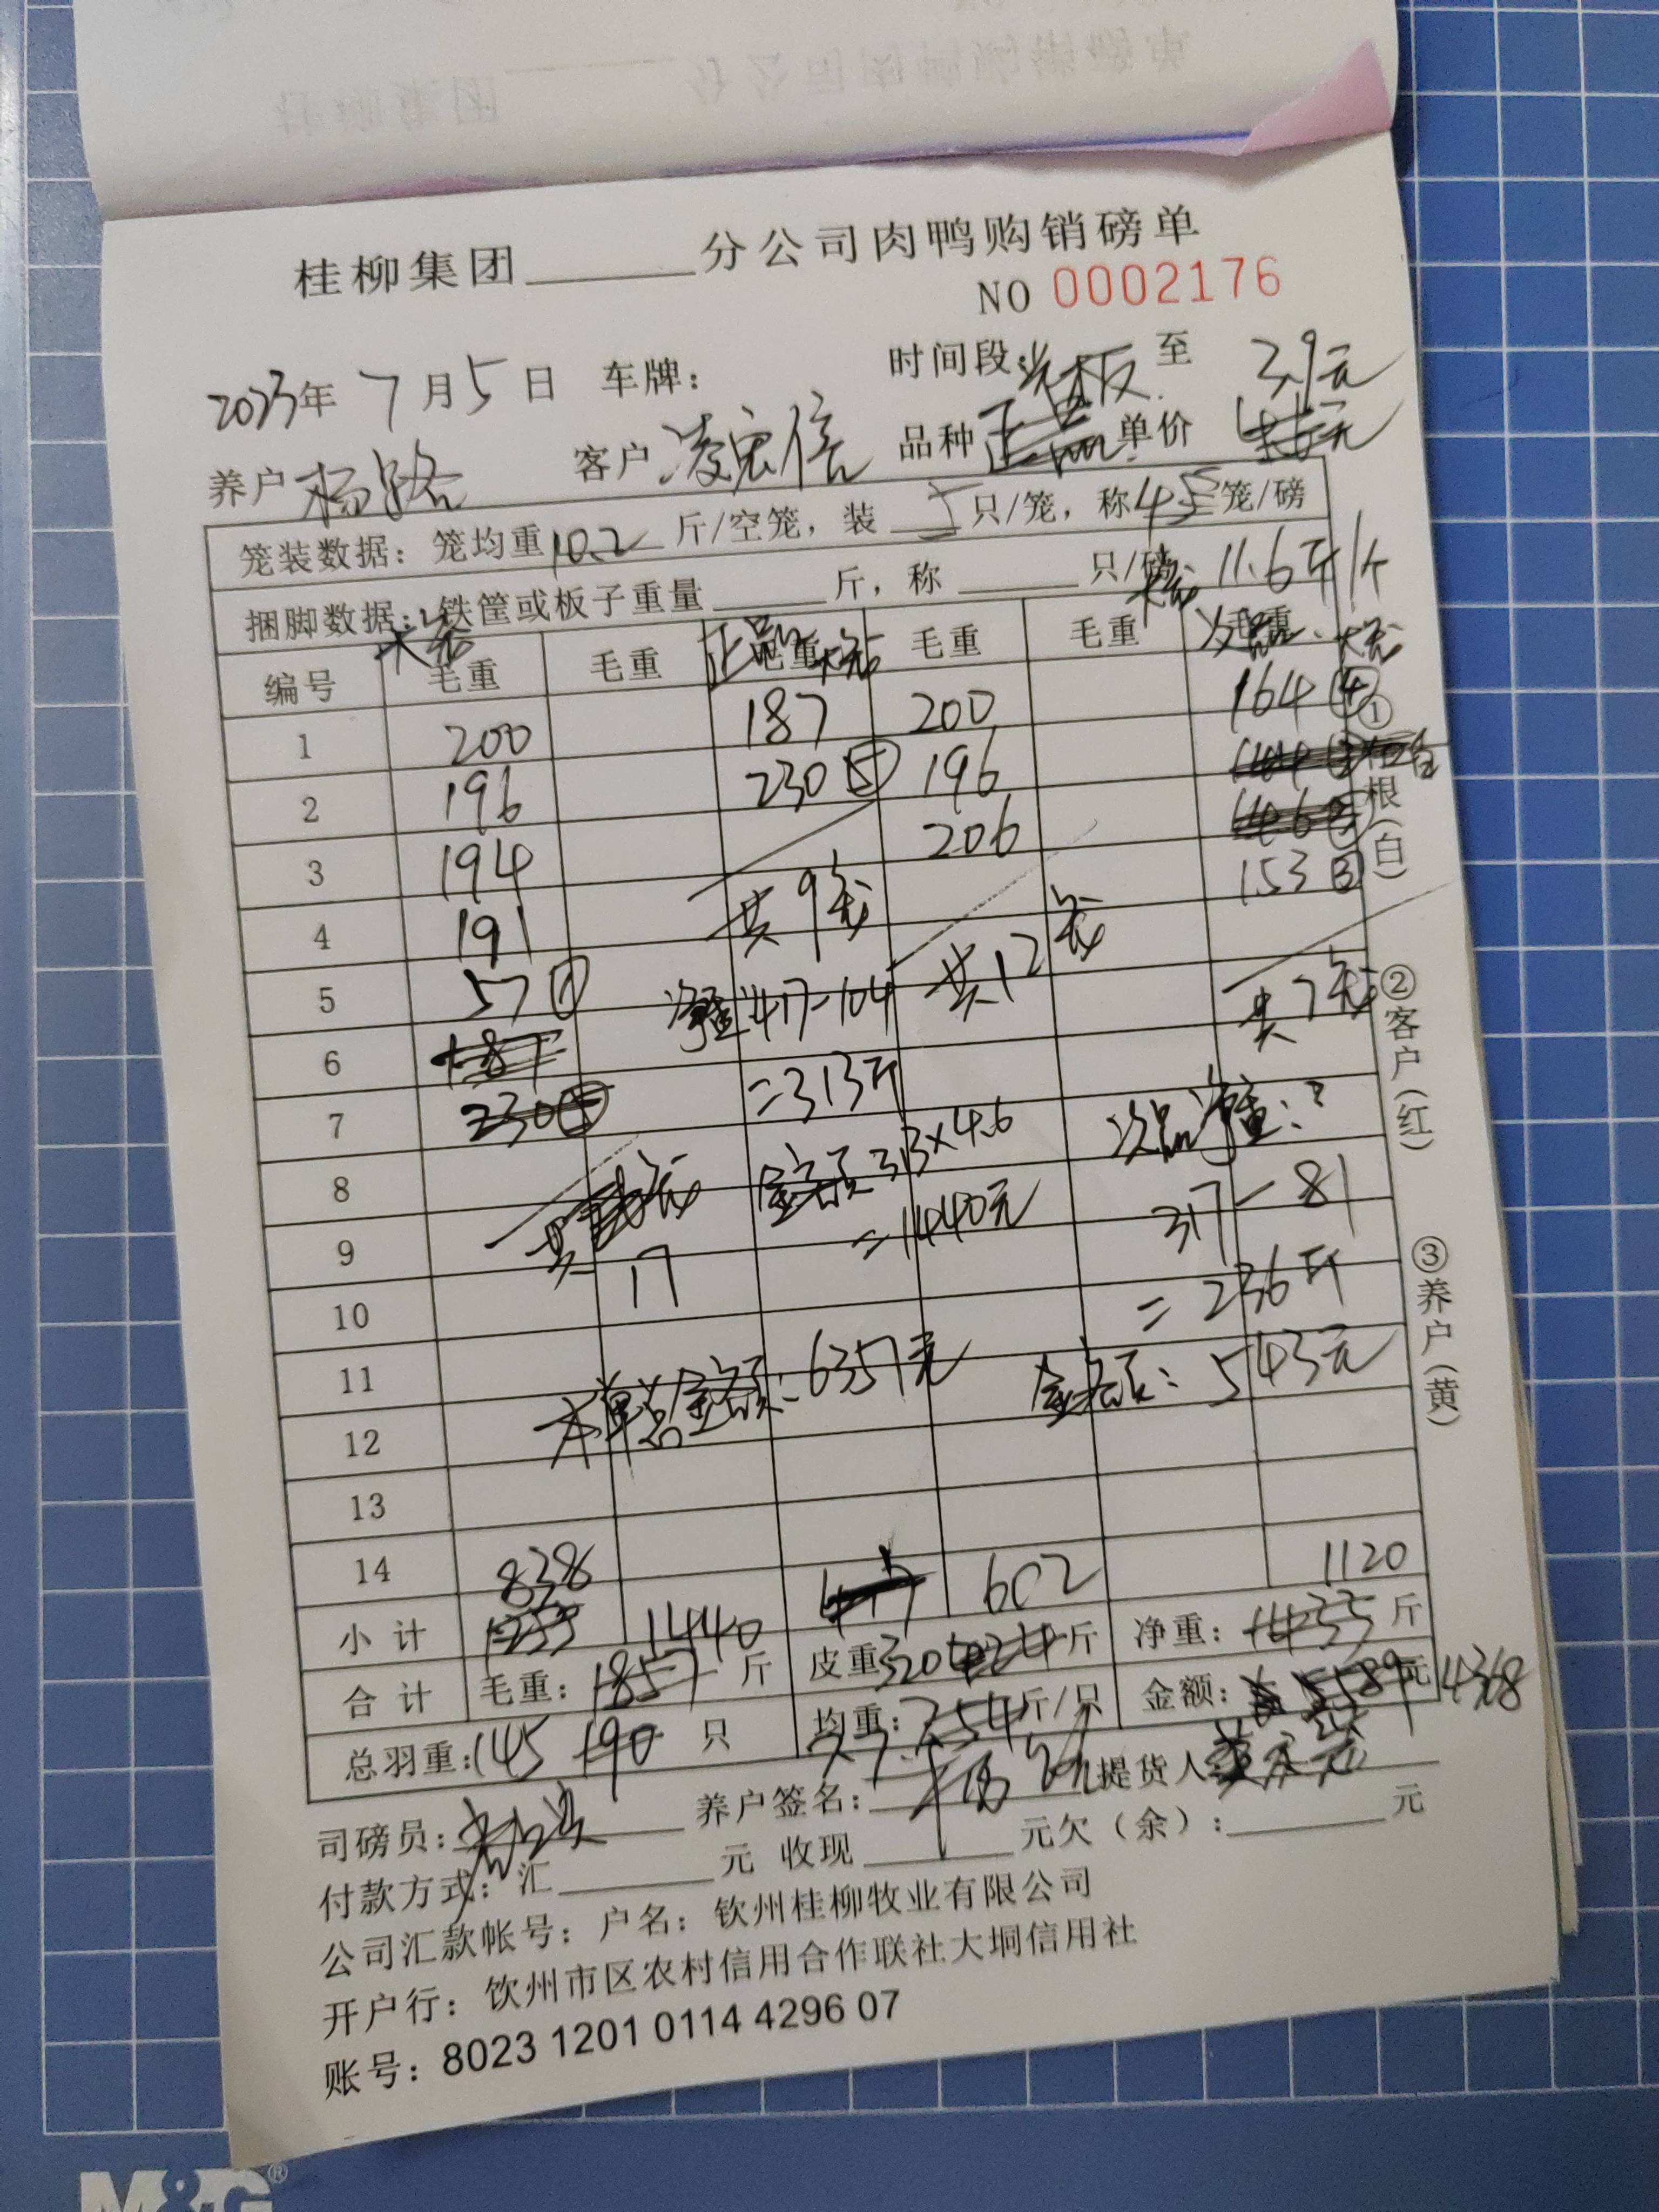 桂柳集团 分公司肉鸭购销磅单
NO 0002176
2023年 7月5日 车牌: 时间段: 光板 至 3.9元
养户 杨路 客户 凌宏信 品种 正品 单价
笼装数据: 笼均重 10.2 斤/空笼, 装 5 只/笼, 称 4 5 笼/磅
捆脚数据: 铁筐或板子重量 斤, 称 只/磅 11.6斤/个
编号 毛重 毛重 正品 毛重 毛重 毛重 次品 毛重
1 200 187 200 164 ④
2 196 230 ⑤ 196
3 194 206 153 ③
4 191 共9笼
5 57 ① 净重 417-104 共12笼 共7笼
6 =313斤
7 230 ⑤ 次品净重:
8 共 笼 金额 313×4.6 317-81
9 17 =1440元 =236斤
10
11 本单总金额: 6357元 金额: 543元
12
13
14 838 602 1120
小计 1255 1440 417
合计 毛重: 1857 斤 皮重 320 424 斤 净重: 1433 斤
总羽重: 145 190 只 均重: 7.7 7.54 斤/只 金额: 5589 元 4368
司磅员: 养户签名: 杨路 提货人:
付款方式: 汇 元 收现 元欠(余): 元
公司汇款帐号: 户名: 钦州桂柳牧业有限公司
开户行: 饮州市区农村信用合作联社大垌信用社
账号: 8023 1201 0114 4296 07
①存根(白)
②客户(红)
③养户(黄)
M&G